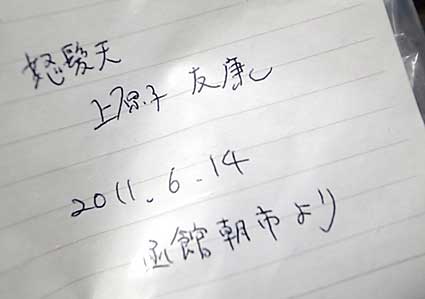 怒髪天
上原子 友康
2011.6.14
函館朝市より